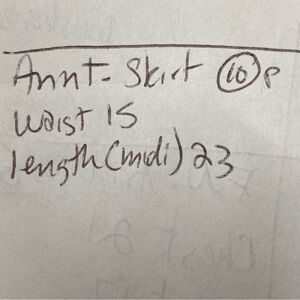 Annt- Skirt 10 P
Waist 15
length (midi) 23
Chest 2